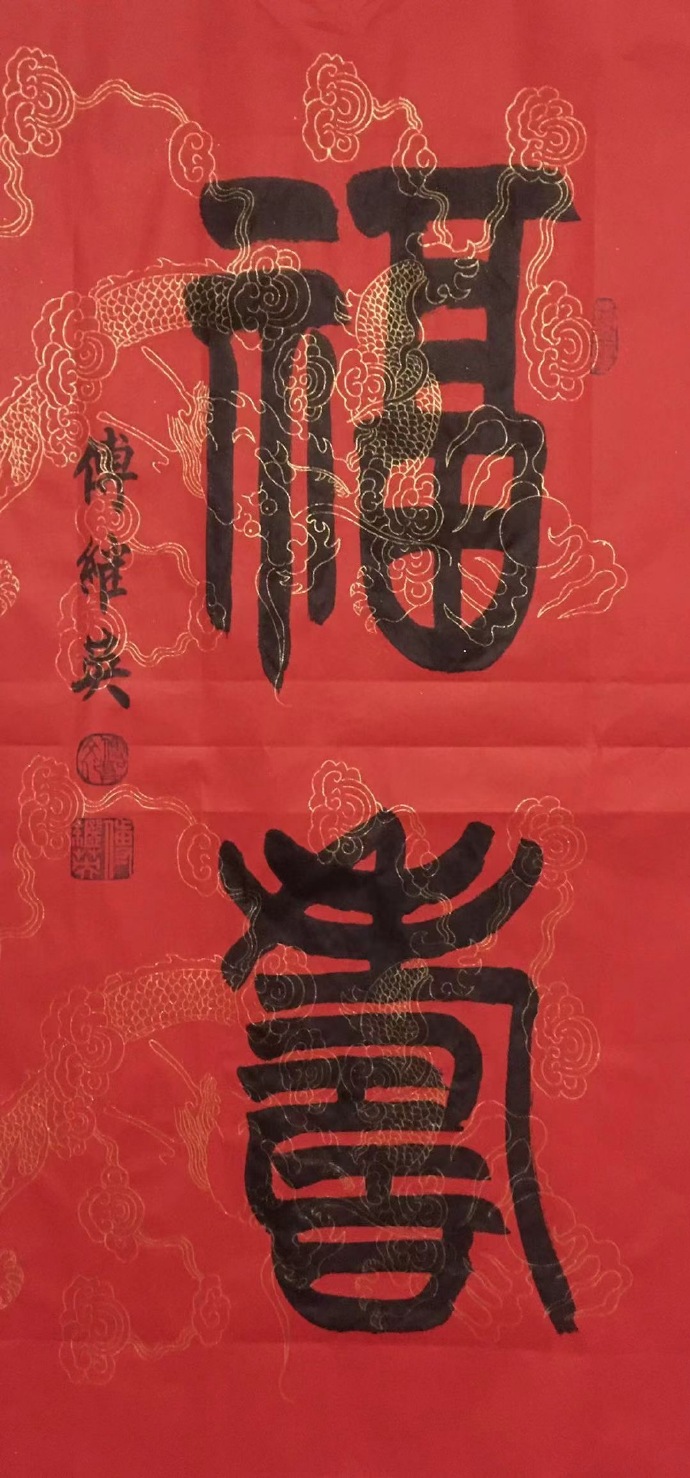 福壽
傅維英